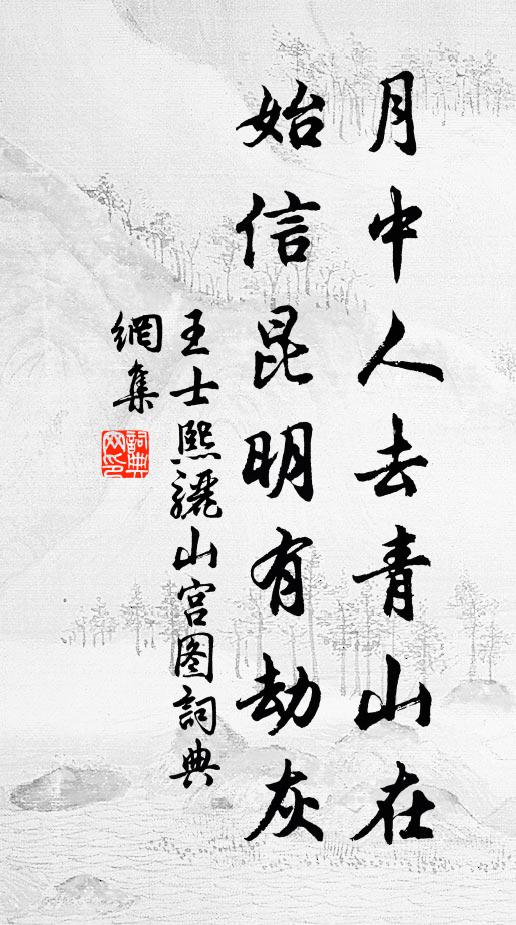 月中人去青山在
始信昆明有劫灰
王士熙驪山宮图詞典
網集
詞典
网印